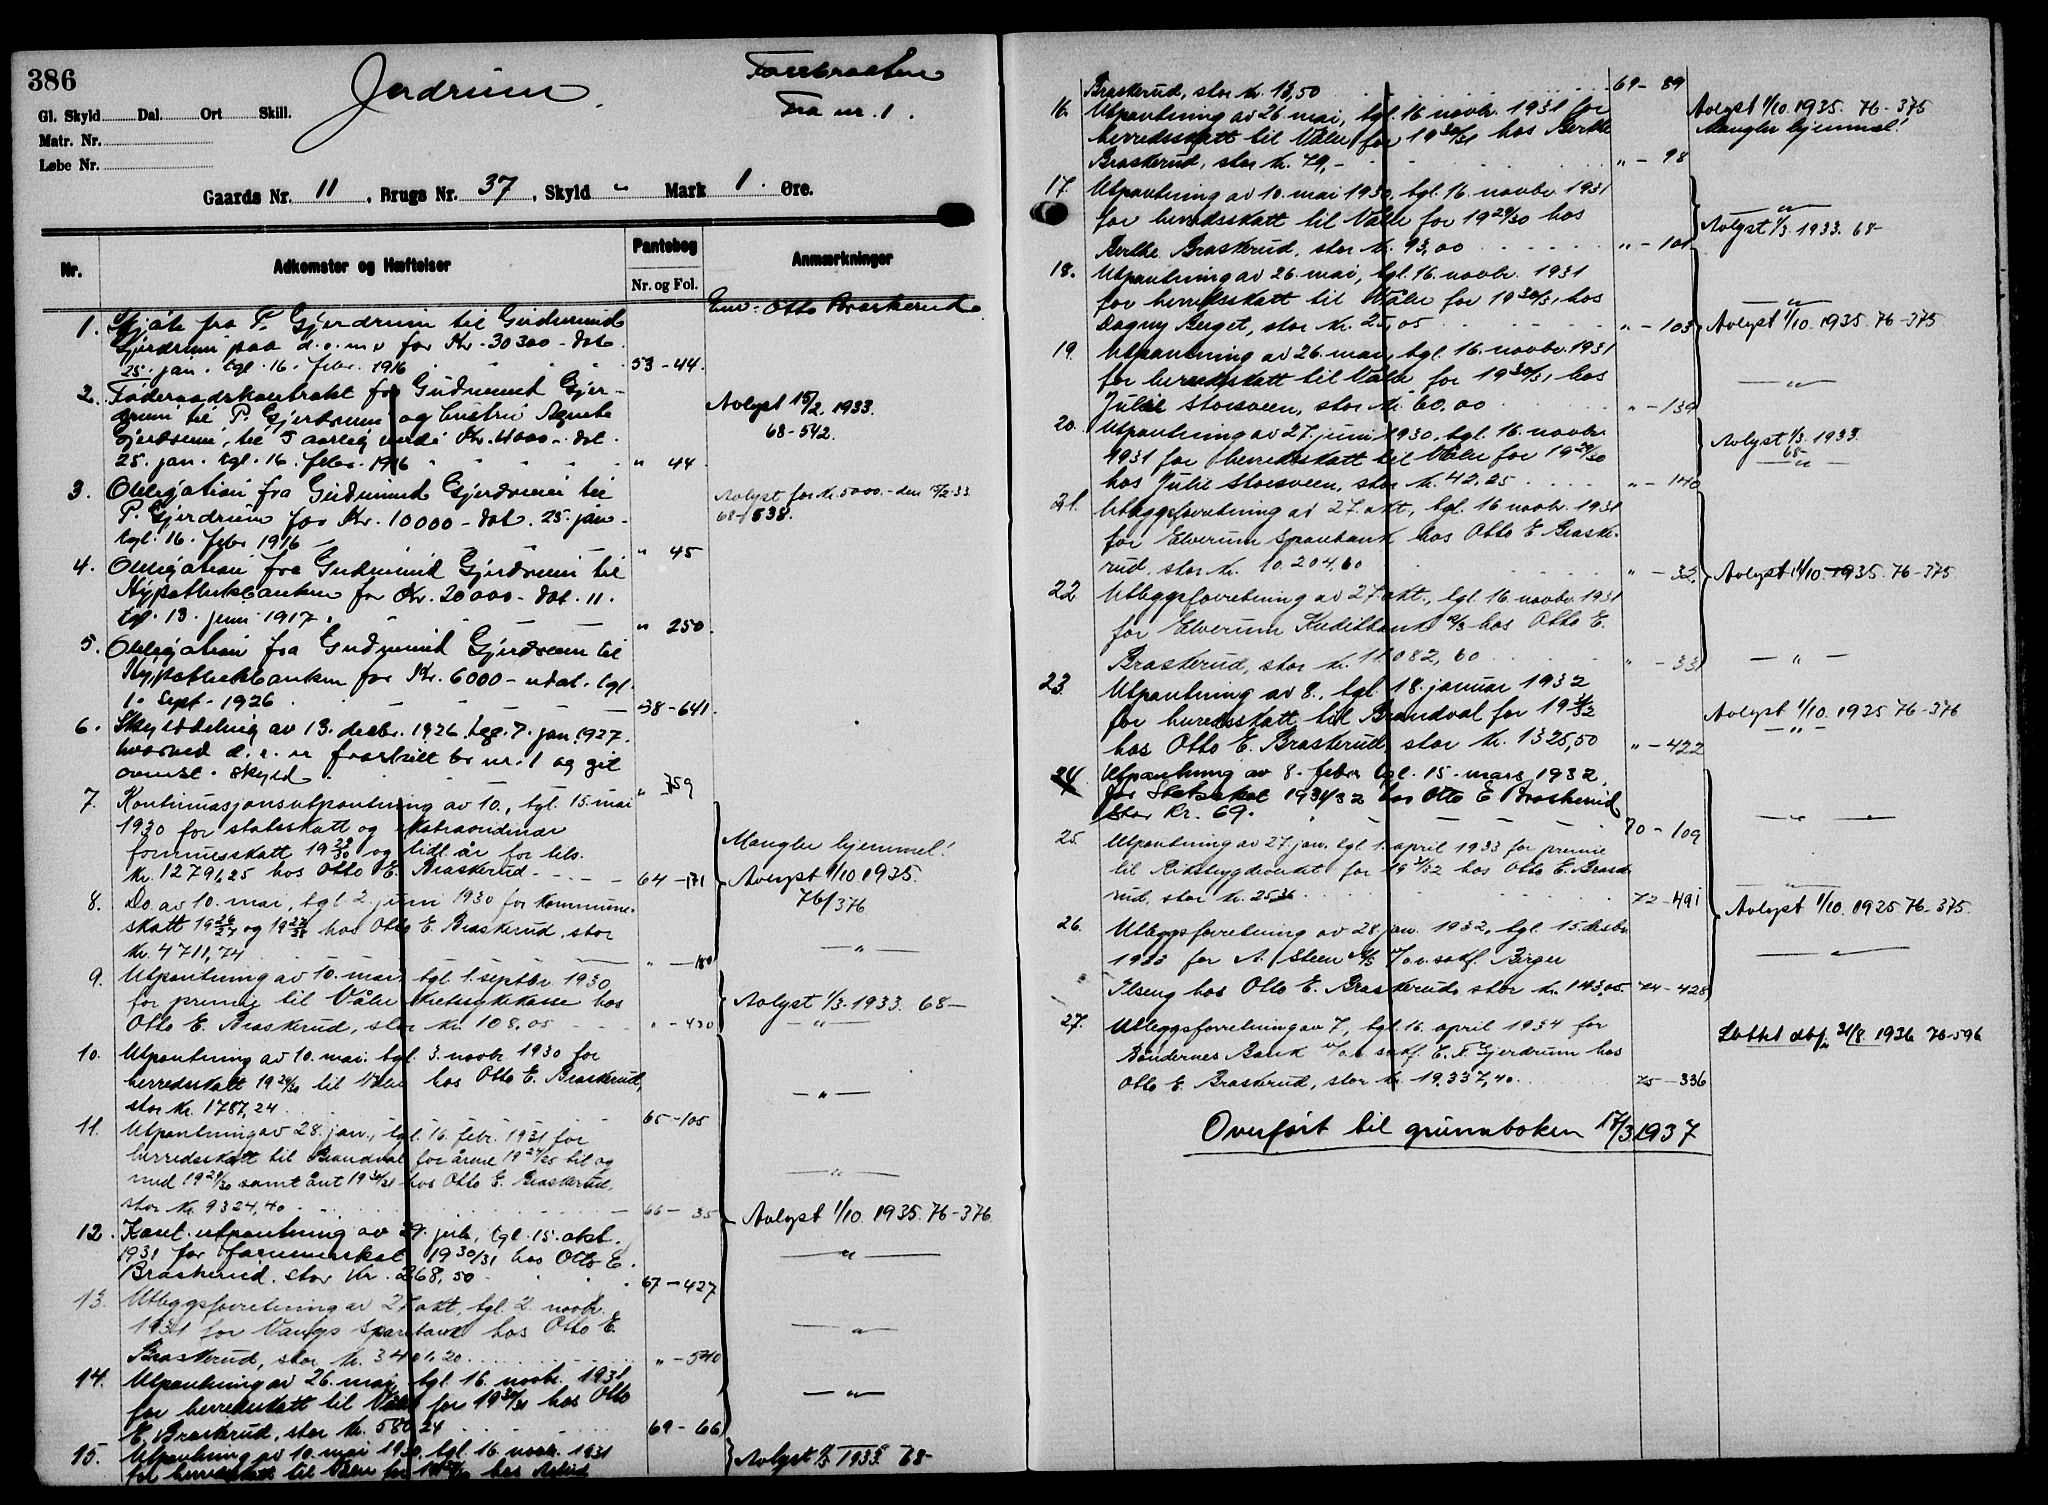 386
Gjerdrum.
Furubraaten
Fra nr. 1.
Gl. Skyld Dal. Ort Skill.
Matr. Nr.
Løbe Nr.
Gaards Nr. 11, Brugs Nr. 37, Skyld " Mark 1. Øre.
Nr.
Adkomster og Hæftelser
Pantebog
Nr. og Fol.
Anmærkninger
Otto Braskerud.
1. Skjøte fra P. Gjerdrum til Gudmund
Gjerdrum paa d. e. m. v for Kr. 30300 - dat.
25. jan. tgl. 16. febr. 1916 53-44.
2. Føderaadskontrakt fra Gudmund Gjer-
drum til P. Gjerdrum og hustru Agnete
Gjerdrum, til 5 aarlig verdi Kr. 4000 - dat.
25. jan. tgl. 16. febr. 1916 " 44.
Avlyst 15/2 1933.
68-542.
3. Obligation fra Gudmund Gjerdrum til
P. Gjerdrum for Kr. 10000 - dat. 25. jan.
tgl. 16. febr 1916 " 45
Avlyst for kr. 5000.- den 15/2-33
68-538.
4. Obligation fra Gudmund Gjerdrum til
Hypothekbanken for Kr. 20000 - dat. 11.
tgl. 13. juni 1917. " 250.
5. Obligation fra Gudmund Gjerdrum til
Hypothekbanken for Kr. 6000 - udat. tgl.
1. sept. 1926 58-641.
6. Skylddeling av 13. decbr. 1926 tgl. 7. jan. 1927.
hvorved d. e. er fraskilt br. nr. 1 og git
ovenst. skyld. " 759
7. Kontinuasjonsutpantning av 10., tgl. 15. mai
1930 for statsskatt og ekstraordinær
formuesskatt 19 29/30 og tidl. år for tils.
kr. 1279,25 hos Otto E. Braskerud 64-171
Mangler hjemmel!
Avlyst 1/10 1935.
76/376
8. Do. av 10. mai, tgl. 2. juni 1930 for kommune-
skatt 19 26/27 og 19 27/28 hos Otto E. Braskerud, stor
kr. 4711,74 " - 180
- " -
9. Utpantning av 10. mai tgl. 1. septbr 1930
for premie til Våler kretssykekasse hos
Otto E. Braskerud, stor kr. 108,05 " - 430
Avlyst 1/3. 1933. 68-
- " -
10. Utpantning av 10. mai, tgl. 3. novbr. 1930 for
herredsskatt 19 29/30 til Våler hos Otto E. Braskerud,
stor kr. 1787,24 65-105
- " -
11. Utpantning av 28. jan., tgl. 16. febr. 1931 for
herredsskatt til Brandval for årene 19 24/25 til og
med 19 29/30 samt året 19 30/31 hos Otto E. Braskerud,
stor kr. 9324,40 66-35
- " -
Avlyst 1/10. 1935. 76-376.
12. Kont. utpantning av 29. juli, tgl. 15. okt.
1931 for formueskat 19 30/31 hos Otto E.
Braskerud. stor kr. 268,50 67-427
- " -
13. Utleggsforretning av 27. okt, tgl. 2. novbr.
1931 for Vangs sparebank hos Otto E.
Braskerud, stor kr. 3401,20 " - 540
- " -
14. Utpantning av 26. mai tgl. 16. novbr. 1931
for herredsskatt til Våler for 19 30/31 hos Otto
E. Braskerud, stor kr. 580,24 69-66
- " -
15. Utpantning av 10. mai 1930, tgl. 16. novbr. 1931
for herredsskatt til Våler for 19 29/30 hos
Avlyst 1/3 1933. 68-
Braskerud, stor kr. 13,50 69-89
16. Utpantning av 26. mai, tgl. 16 novbr. 1931 for
herredsskatt til Våler for 19 30/31 hos Berthe
Braskerud, stor kr. 79,- " - 98
Avlyst 1/10. 1935. 76-375
Mangler hjemmel!
17. Utpantning av 10. mai 1930, tgl. 16. novbr. 1931
for herredsskatt til Våler for 19 29/30 hos
Berthe Braskerud, stor kr. 93,00 " - 101
- " -
Avlyst 1/3. 1933. 68-
18. Utpantning av 26. mai, tgl. 16. novbr. 1931
for herredsskatt til Våler for 19 30/31 hos
Dagny Berget, stor kr. 25,05 " - 103
- " -
Avlyst 1/10. 1935. 76-375
19. Utpantning av 26. mai, tgl. 16. novbr. 1931
for herredsskatt til Våler for 19 30/31 hos
Julie Storsveen, stor kr. 60,00 " - 139
- " -
20. Utpantning av 27. juni 1930, tgl. 16. novbr.
1931 for herredsskatt til Våler for 19 29/30
hos Julie Storsveen, stor kr. 42,25 " - 140
Avlyst 1/3. 1933.
68
- " -
21. Utleggsforretning av 27. okt, tgl. 16 novbr. 1931
for Elverum sparebank hos Otto E. Braske-
rud, stor kr. 10.204,60 " - 32
Avlyst 1/10 - 1935. 76-375
22 Utleggsforretning av 27 okt., tgl. 16 novbr 1931
for Elverum Kreditbank hos Otto E.
Braskerud, stor kr. 11082,60 " - 33
- " -
23. Utpantning av 8., tgl. 18. januar 1932
for herredsskatt til Brandval for 19 31/32
hos Otto E. Braskerud, stor kr. 1325,50 " - 422
Avlyst 1/10. 1935 76-376
- " -
24. Utpantning av 8. febr. tgl. 15. mars 1932
for Statsskat 1931/32 hos Otto E. Braskerud
stor Kr. 69. 70-109
- " -
25. Utpantning av 27. jan. tgl. 1. april 1933 for premie
til Rikstrygdeverket for 19 31/32 hos Otto E. Brask-
rud, stor kr. 25,36 72-491
- " -
Avlyst 1/10. 1935 76-375.
26. Utleggsforretning av 28. jan. 1932, tgl. 15. desbr.
1933 for A. Steen A/S v/o.r.sakf. Birger
Ilseng hos Otto E. Braskerud, stor kr. 143,05 74-428
- " -
27. Utleggsforretning av 7, tgl. 16. april 1934 for
Bøndernes Bank v/o.r. sakf. E. F. Gjerdrum hos
Otto E. Braskerud, stor kr. 19.337,40 75-336
Slettet 31/8. 1936 76-596
Overført til grunnboken 17/3 1937